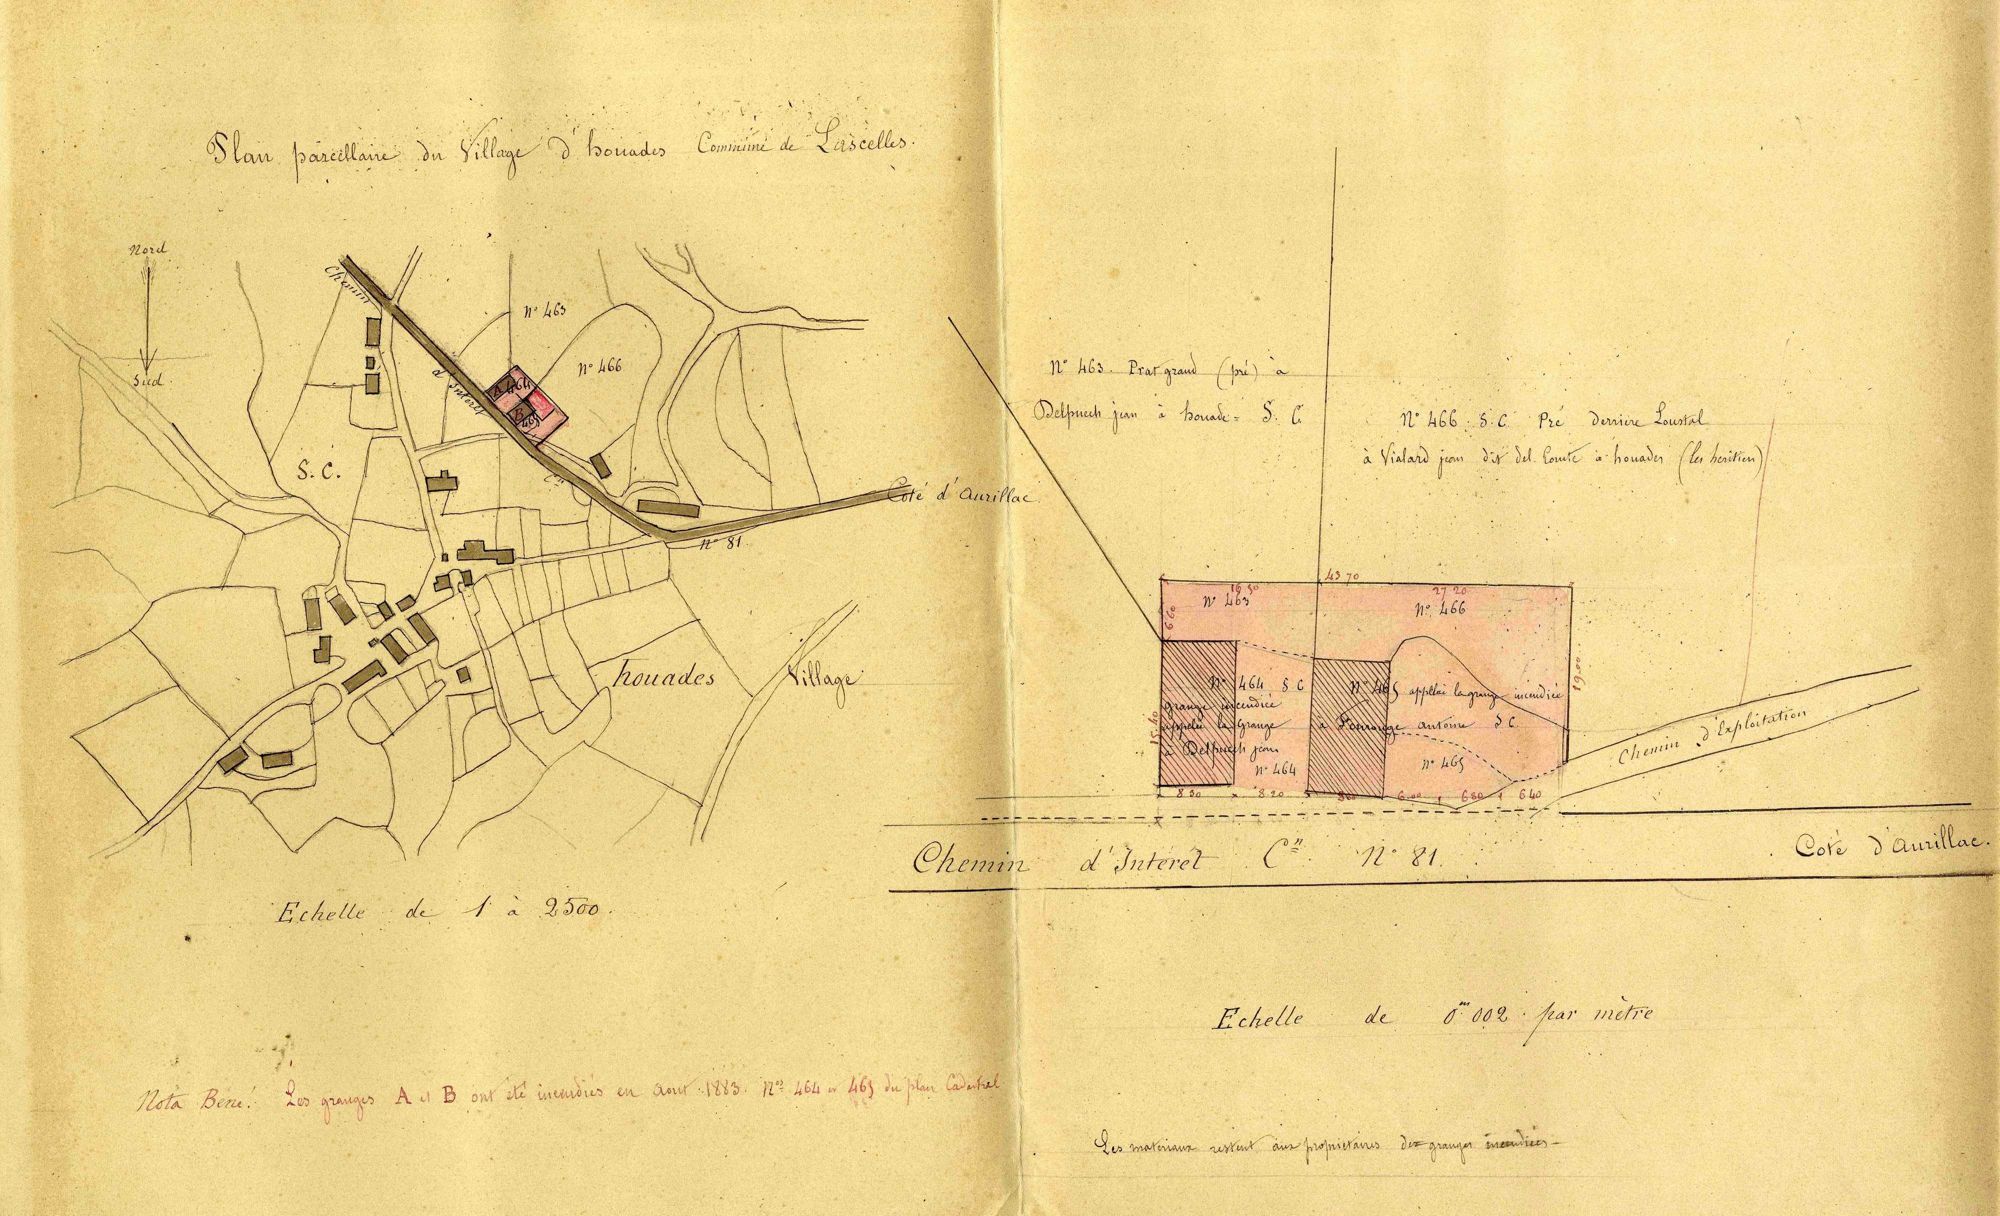 Plan parcellaire du Village d'houades Commune de Lascelles.
Nord
Sud
Chemin
d'Intérêt
Cⁿ
N° 81.
Coté d'Aurillac
N° 463
N° 466
A 464
B
465
S. C.
houades Village
Echelle de 1 à 2500.
Nota Bene. Les granges A et B ont été incendiés en Aout 1883. Nos 464 et 465 du plan Cadastral
N° 463. Prat grand (pré) à
Delpuech jean à houade = S. C.
N° 466 S. C. Pré derrière Loustal
à Vialard jean dit del Comte à houades (les heritiers)
43 70
16 50
27 20
N° 463
N° 466
6 60
15.40
19.00
N° 464 S. C
grange incendiée
appelée la Grange
à Delpuech jean
N° 464
N° 465 appelée la grange incendiée
à antoine S C.
N° 465
8 30
8 20
8 00
6.00
6 80
6 40
Chemin d'Exploitation
Chemin d'Intéret Cⁿ N° 81.
Coté d'Aurillac.
Echelle de 0m 002 par mètre
Les materiaux restent aux propriétaires des granges incendiées -